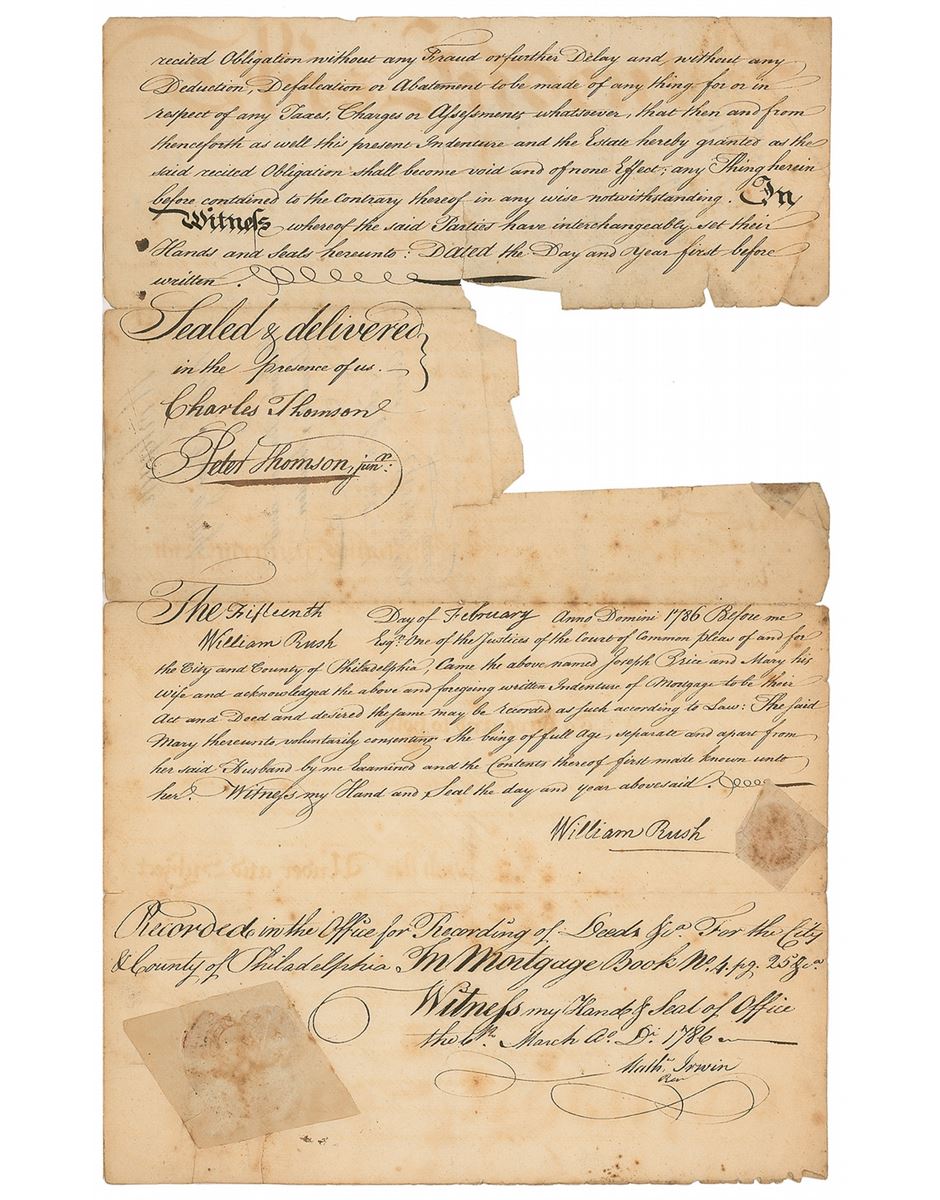 recited Obligation without any Fraud or further Delay and without any
Deduction, Defalcation or Abatement to be made of any thing for or in
respect of any Taxes, Charges or Assessments whatsoever, that then and from
thenceforth as well this present Indenture and the Estate hereby granted as the
said recited Obligation shall become void and of none Effect; any Thing herein
before contained to the Contrary thereof in any wise notwithstanding. In
Witness whereof the said Parties have interchangeably set their
Hands and Seals hereunto: Dated the Day and Year first before
written.
Sealed & delivered
in the presence of us.
Charles Thomson
Peter Thomson, junr:
The Fifteenth Day of February Anno Domini 1786 Before me
William Rush Esqr. One of the Justices of the Court of Common pleas of and for
the City and County of Philadelphia, Came the above named Joseph Price and Mary his
Wife and acknowledged the above and foregoing written Indenture of Mortgage to be their
Act and Deed and desired the same may be recorded as such according to Law: The said
Mary thereunto voluntarily consenting She being of full Age, separate and apart from
her said Husband by me Examined and the Contents thereof first made known unto
her. Witness my Hand and Seal the day and year abovesaid.
William Rush
Recorded in the Office for Recording of Deeds &ca For the City
& County of Philadelphia In Mortgage Book No. 4. pg. 25 &ca
Witness my Hand & Seal of Office
the 6th March Ao. Di. 1786
Mathw Irwin
Rer